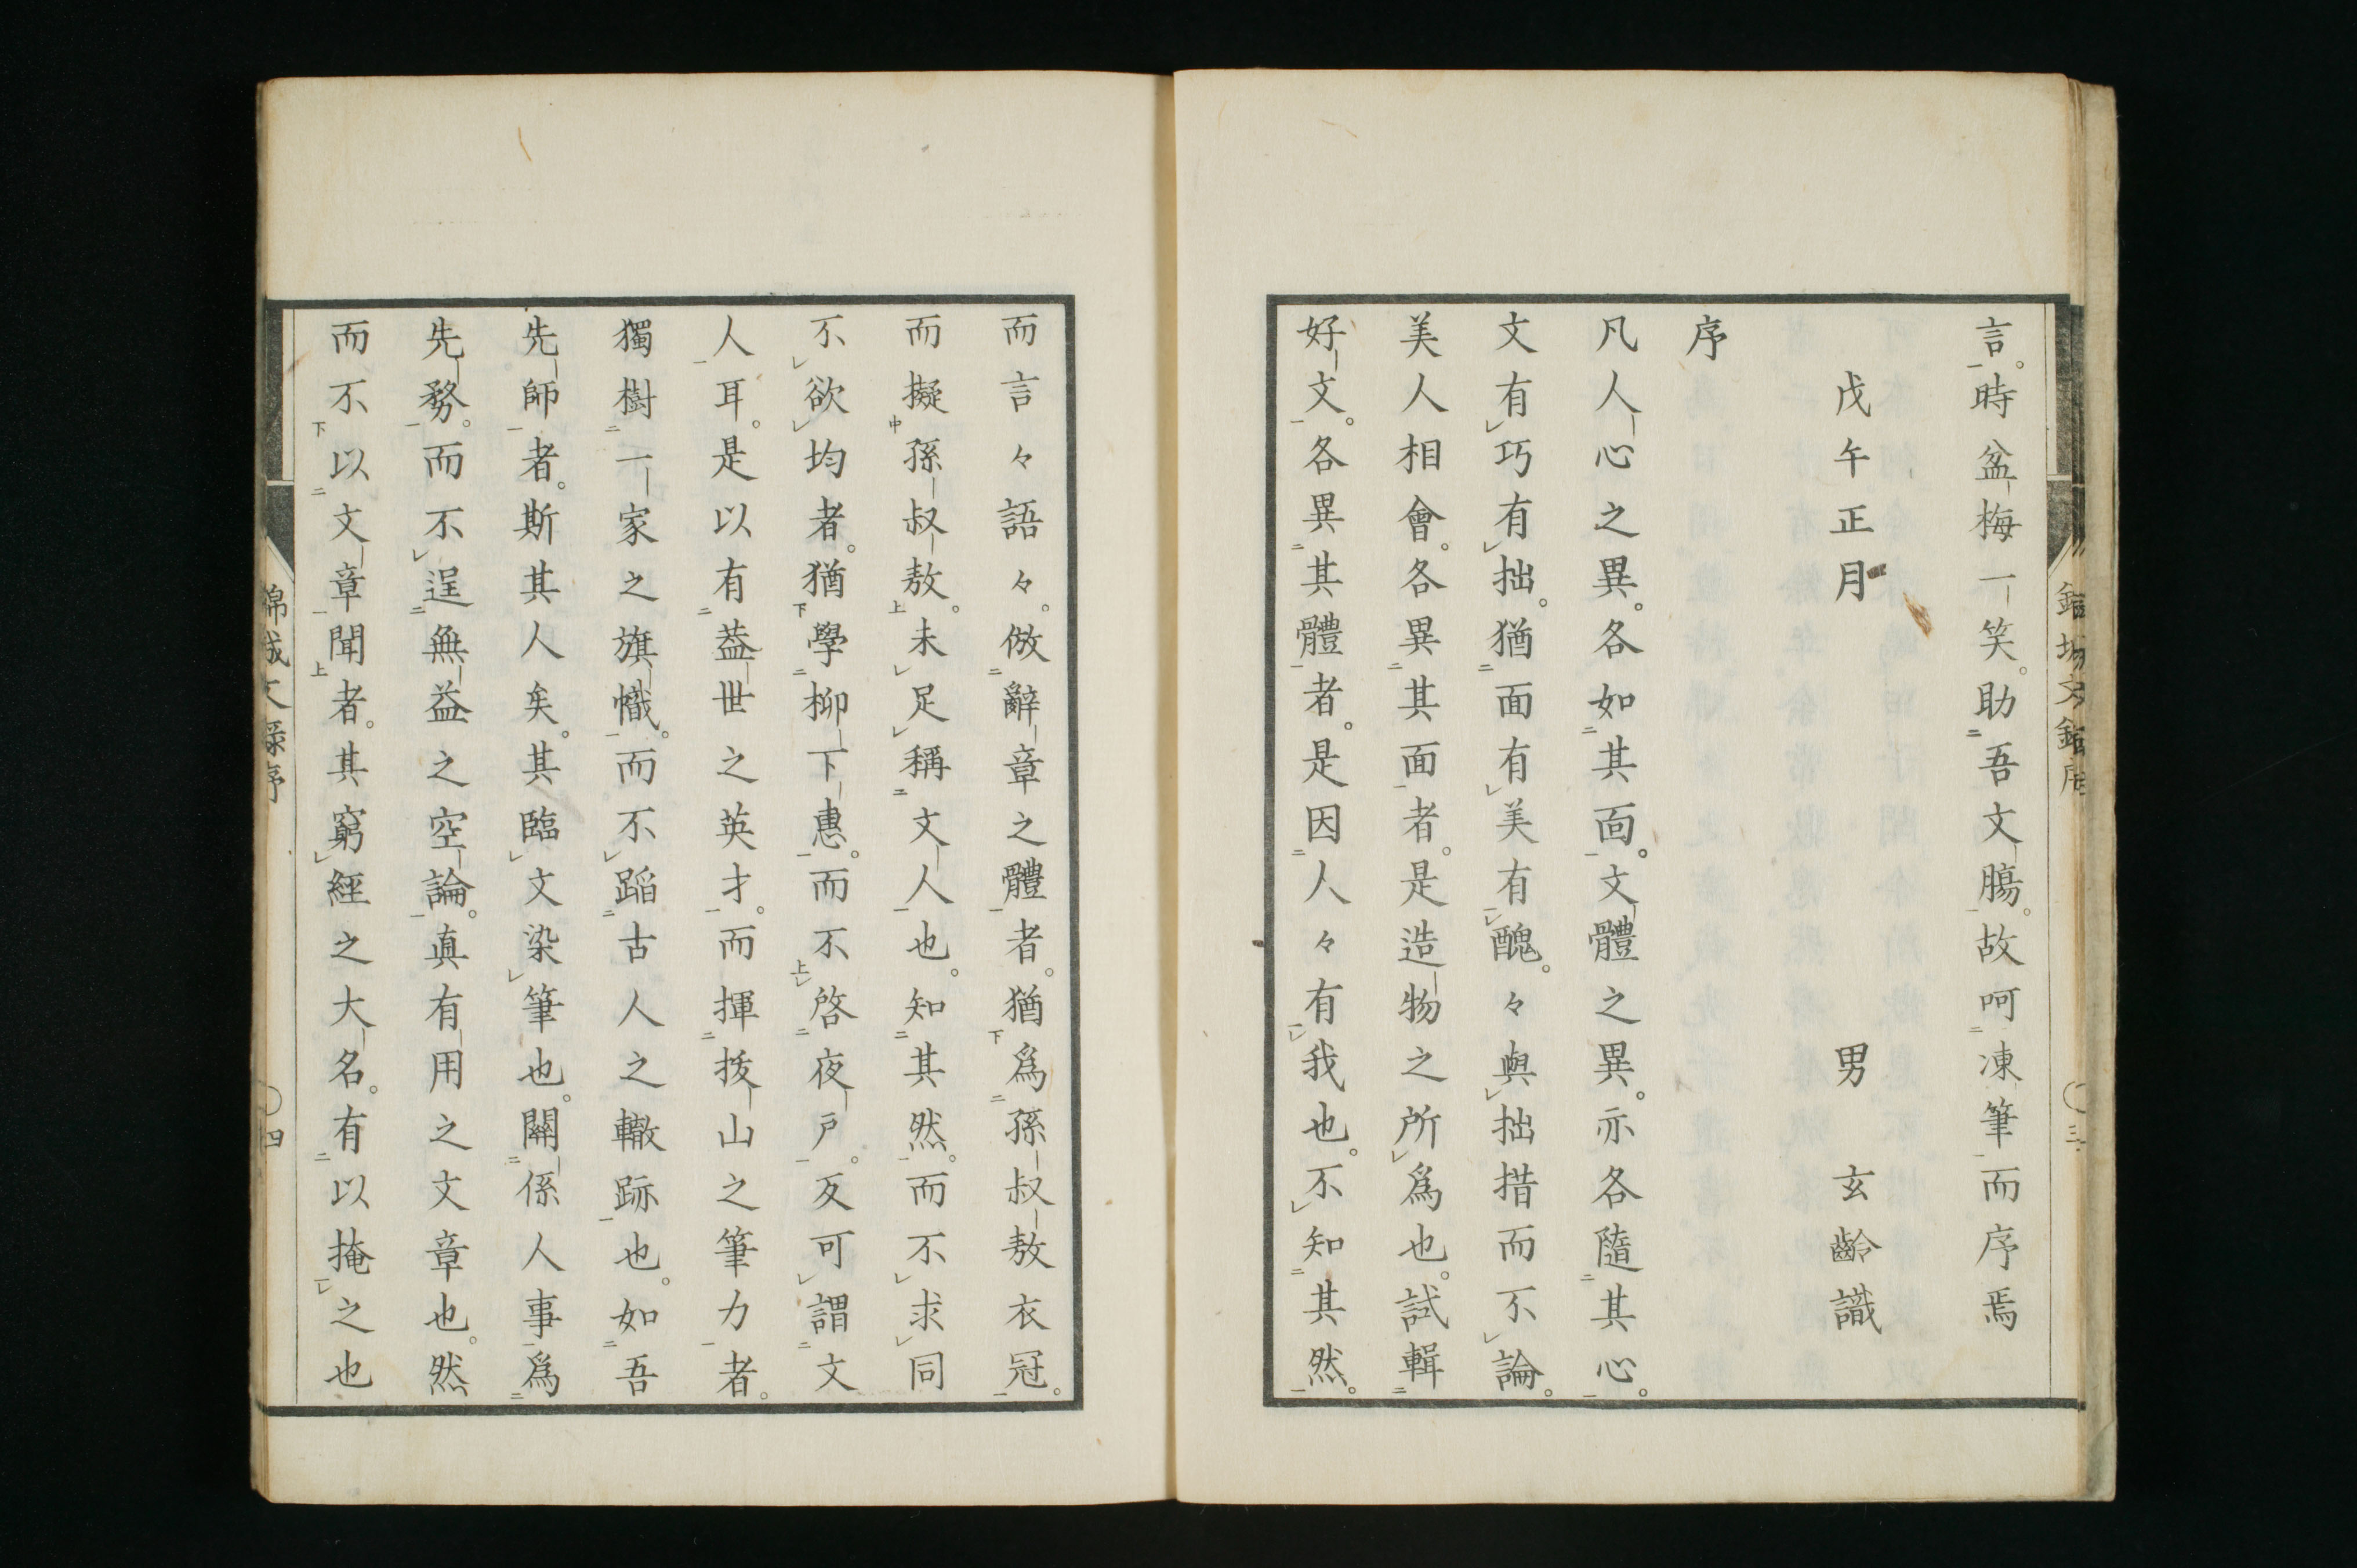 言。時盆梅一笑。助吾文腸。故呵凍筆而序焉
戊午正月　男　玄齡識
序
凡人心之異。各如其面。文體之異。亦各隨其心。
文有巧有拙。猶面有美有醜。々與拙措而不論。
美人相會。各異其面者。是造物之所爲也。試輯
好文。各異其體者。是因人々有我也。不知其然。
而言々語々。倣辭章之體者。猶爲孫叔敖衣冠。
而擬孫叔敖。未足稱文人也。知其然。而不求同
不欲均者。猶學柳下惠。而不啓夜戶。亥可謂文
人耳。是以有蓋世之英才。而揮拔山之筆力者。
獨樹一家之旗幟。而不蹈古人之轍跡也。如吾
先師者。斯其人矣。其臨文染筆也。關係人事爲
先務。而不逞無益之空論。眞有用之文章也。然
而不以文章聞者。其窮經之大名。有以掩之也
錦城文錄序
四